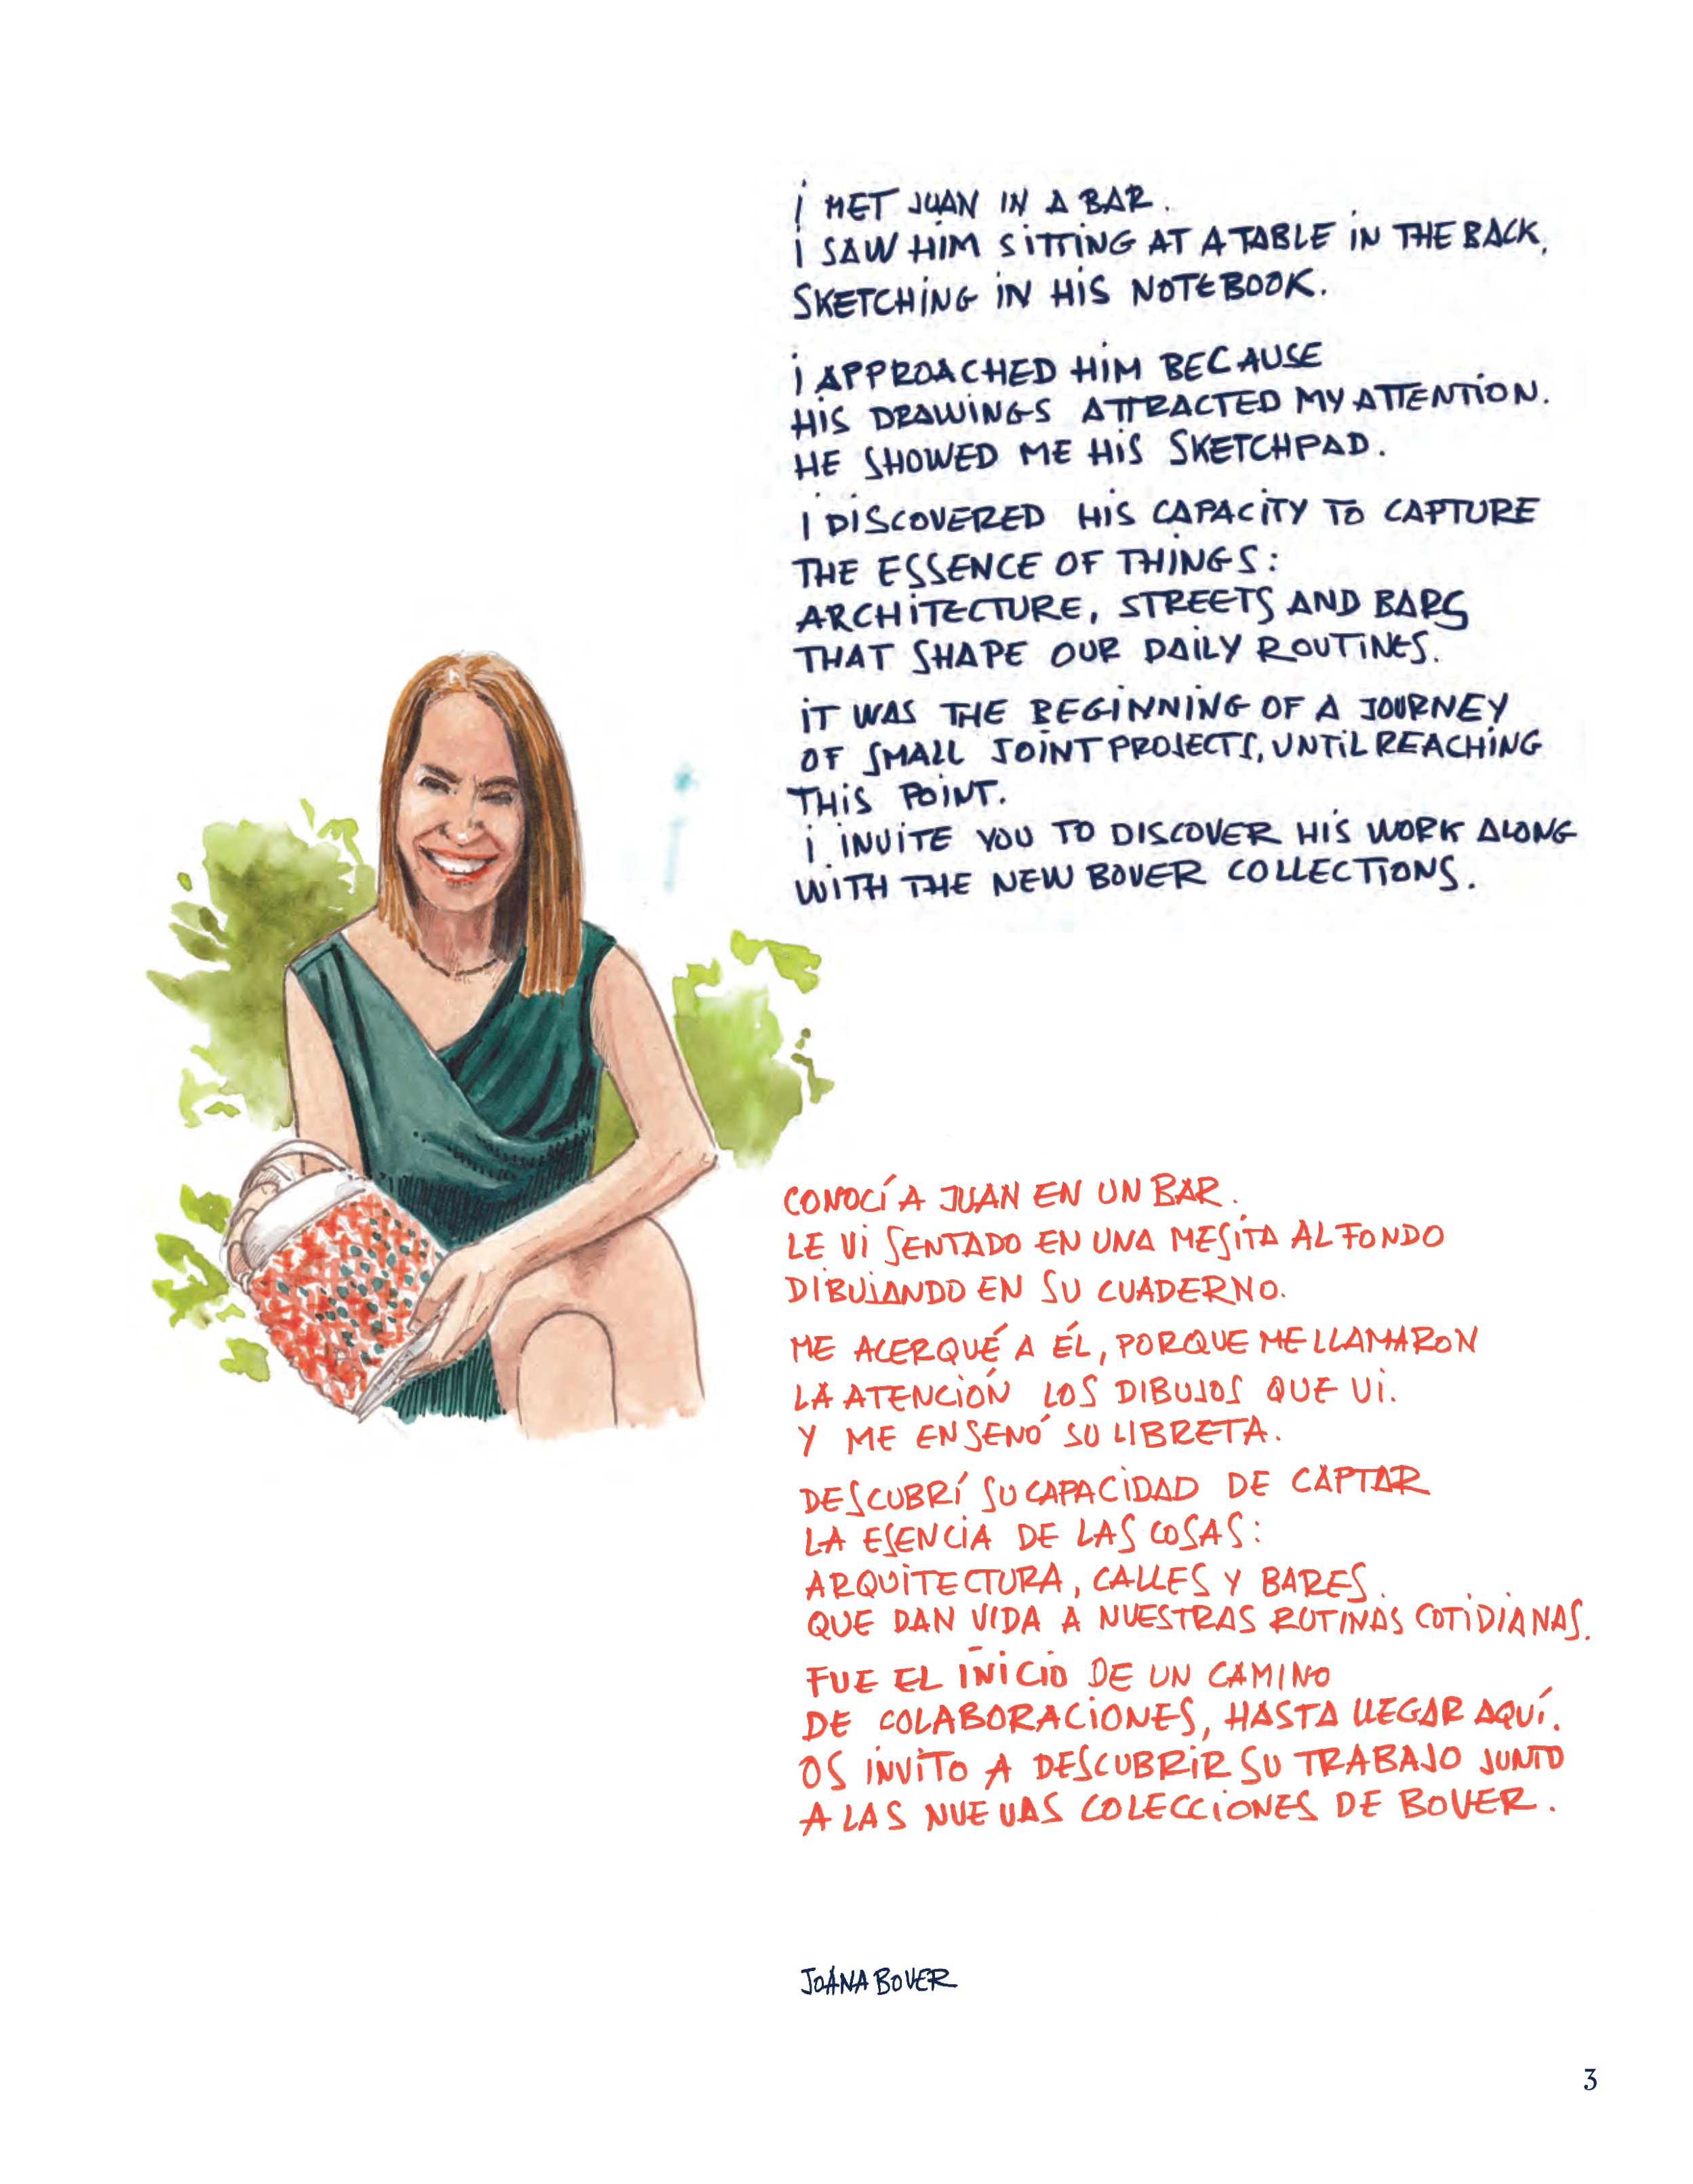 I MET JUAN IN A BAR.
I SAW HIM SITTING AT A TABLE IN THE BACK,
SKETCHING IN HIS NOTEBOOK.
I APPROACHED HIM BECAUSE
HIS DRAWINGS ATTRACTED MY ATTENTION.
HE SHOWED ME HIS SKETCHPAD.
I DISCOVERED HIS CAPACITY TO CAPTURE
THE ESSENCE OF THINGS:
ARCHITECTURE, STREETS AND BARS
THAT SHAPE OUR DAILY ROUTINES.
IT WAS THE BEGINNING OF A JOURNEY
OF SMALL JOINT PROJECTS, UNTIL REACHING
THIS POINT.
I INVITE YOU TO DISCOVER HIS WORK ALONG
WITH THE NEW BOVER COLLECTIONS.
CONOCÍ A JUAN EN UN BAR.
LE VI SENTADO EN UNA MESITA AL FONDO
DIBUJANDO EN SU CUADERNO.
ME ACERQUÉ A ÉL, PORQUE ME LLAMARON
LA ATENCIÓN LOS DIBUJOS QUE VI.
Y ME ENSENÓ SU LIBRETA.
DESCUBRÍ SU CAPACIDAD DE CAPTAR
LA ESENCIA DE LAS COSAS:
ARQUITECTURA, CALLES Y BARES
QUE DAN VIDA A NUESTRAS RUTINAS COTIDIANAS.
FUE EL INICIO DE UN CAMINO
DE COLABORACIONES, HASTA LLEGAR AQUÍ.
OS INVITO A DESCUBRIR SU TRABAJO JUNTO
A LAS NUEVAS COLECCIONES DE BOVER.
JOANA BOVER
3